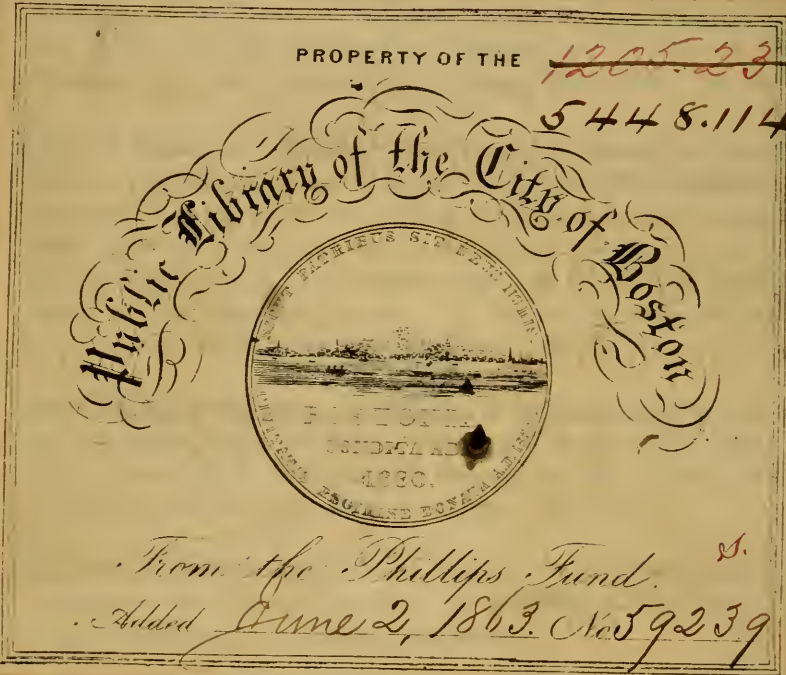 PROPERTY OF THE 1205.23
5448.114
Public Library of the City of Boston
SICUT PATRIBUS SIT DEUS NOBIS
BOSTONIA
CONDITA AD
1630.
REGIMINE DONATA A.D.
From the Phillips Fund.
S.
Added June 2, 1863. No 59239